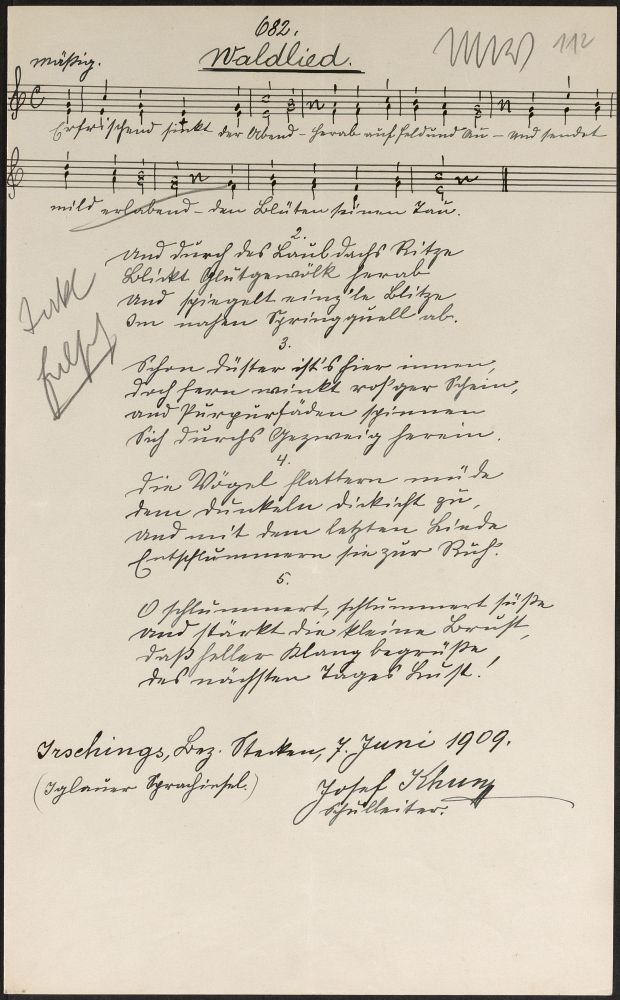 682.
112
Mäßig.
Waldlied.
Erfrischend sinkt der Abend - herab auf Feld und Au - und sendet
mild erlabend - den Blüten seinen Tau.
2.
Und durch des Laubdachs Ritze
Blickt Glutgewölk herab
Und spiegelt einz'le Blitze
Im nahen Springquell ab.
3.
Schon düster ist's hier innen,
Doch fern winkt ros'ger Schein,
Und Purpurfäden spinnen
Sich durchs Gezweig herein.
4.
Die Vögel flattern müde
Dem dunkeln Dickicht zu,
Und mit dem letzten Liede
Entschlummern sie zur Ruh'.
5.
O schlummert, schlummert süße
Und stärkt die kleine Brust,
Daß heller Klang begrüße
Des nächsten Tages Lust!
Irschings, Bez. Stecken, 7. Juni 1909.
(Iglauer Sprachinsel.)
Josef
Schulleiter.